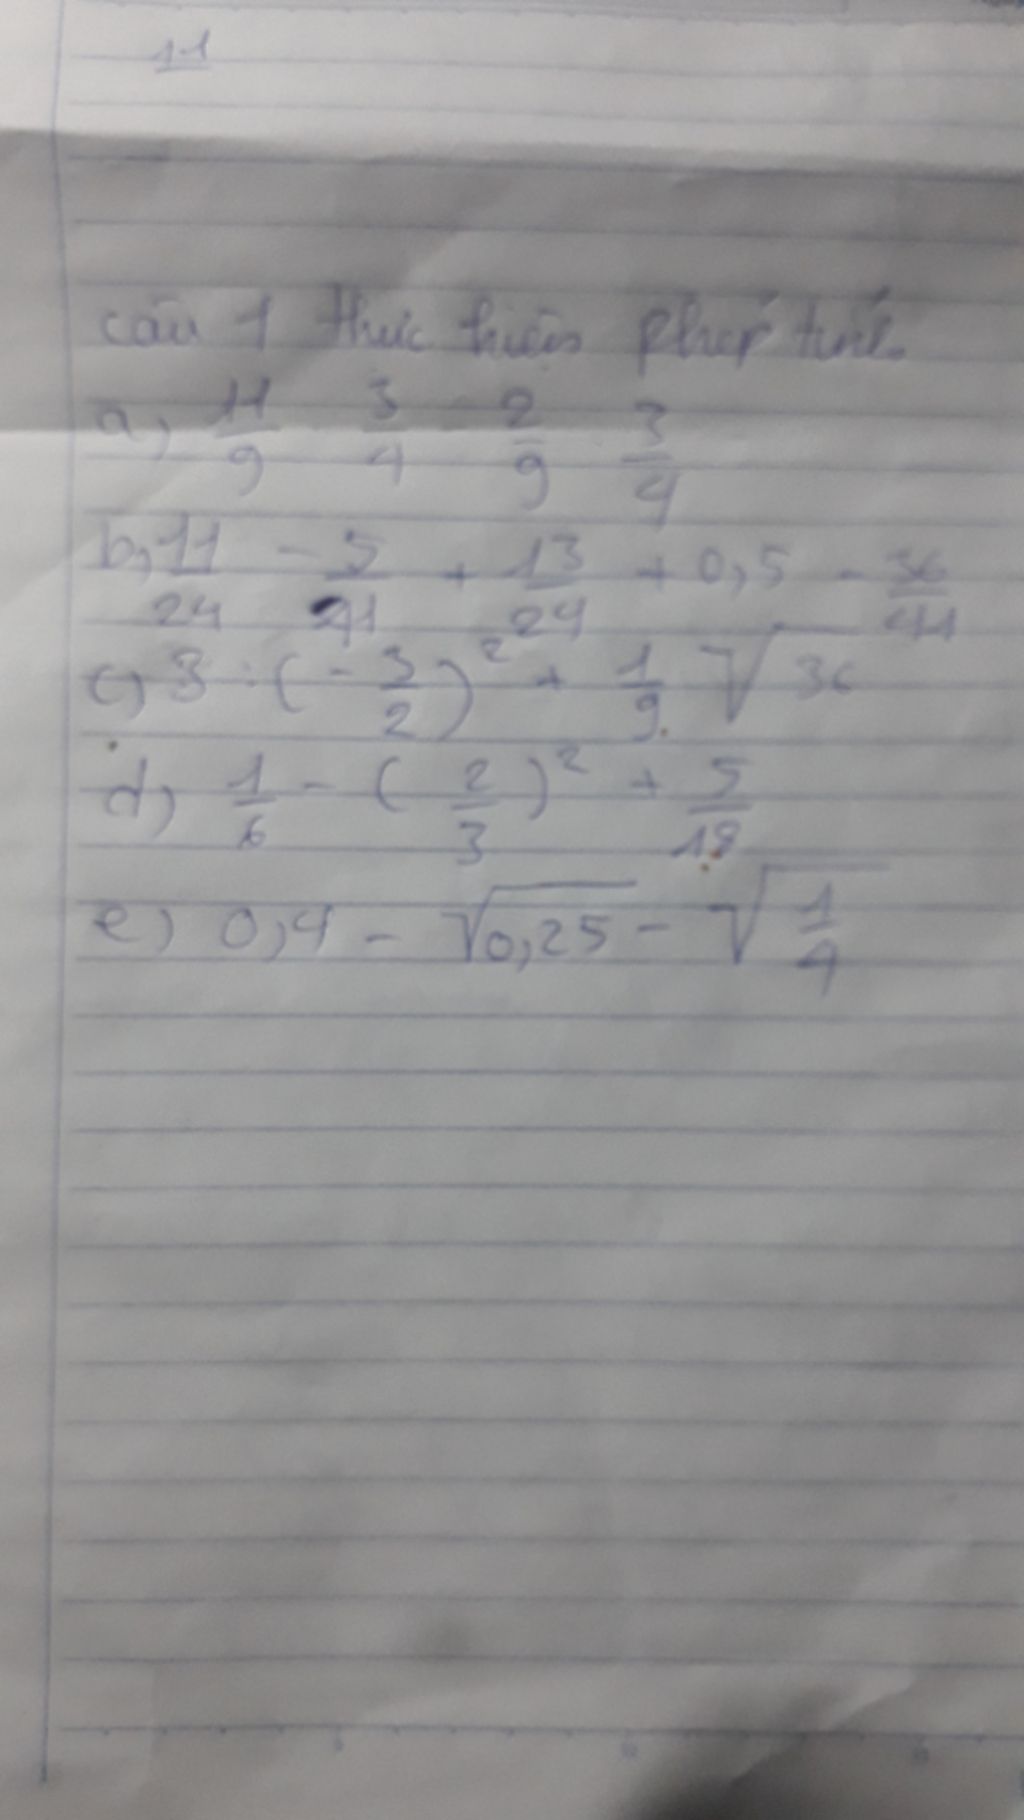 11
câu 1 thực hiện phép tính.
a, 11/9 3/4 - 2/9 3/4
b, 11/24 - 5/41 + 13/24 + 0,5 - 36/41
c) 3 : (-3/2)² + 1/9 . √36
d) 1/6 - (2/3)² + 5/18
e) 0,4 - √0,25 - √1/4